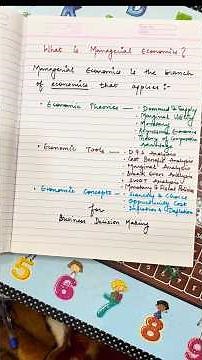 What is Managerial Economics?
Managerial Economics is the branch
of economics that applies:-
• Economic Theories — - Demand & Supply
- Marginal Utility
- Monetary
- Keynesian Economics
- Theory of Comparative
Advantage
• Economic Tools — - D&S Analysis
- Cost Benefit Analysis
- Marginal Analysis
- Break Even Analysis
- SWOT Analysis
- Monetary & Fiscal Policies
• Economic Concepts - Scarcity & Choice
Opportunity Cost
Inflation & Deflation
for
Business Decision Making
5
6
7
8
9